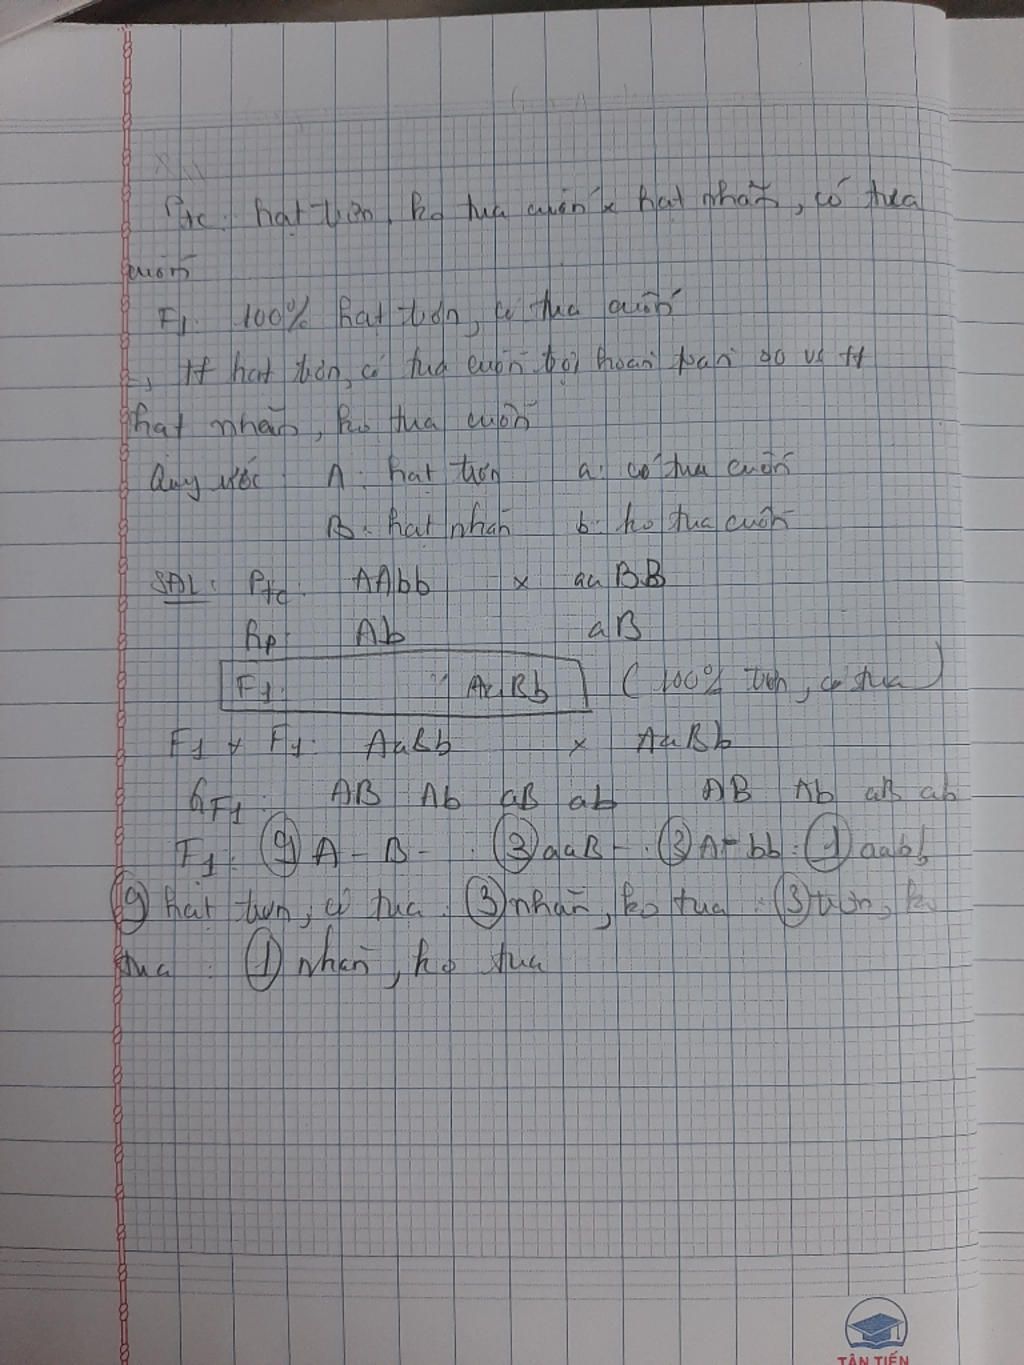 Ptc: hạt trơn, ko tua cuốn x hạt nhăn, có tua
cuốn
F1: 100% hạt trơn, có tua cuốn
→ tt hạt trơn, có tua cuốn trội hoàn toàn so vs tt
hạt nhăn, ko tua cuốn
Quy ước: A: hạt trơn a: có tua cuốn
B: hạt nhăn b: ko tua cuốn
SĐL: Ptc: AAbb x aaBB
Gp: Ab aB
F1: AaBb (100% trơn, có tua)
F1 x F1: AaBb x AaBb
GF1: AB Ab aB ab AB Ab aB ab
F1: 9 A-B- : 3 aaB- : 3 A-bb : 1 aabb
9 hạt trơn, có tua : 3 nhăn, ko tua : 3 trơn, ko
tua : 1 nhăn, ko tua
TÂN TIẾN